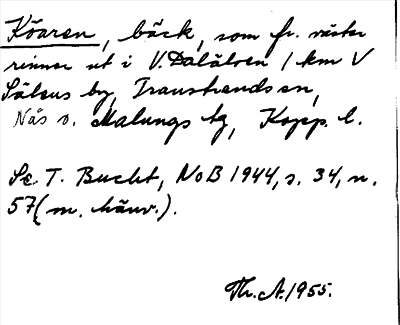 Köaren, bäck, som fr. väster
rinner ut i V. Dalälven 1 km V
Sälens by, Transtrands sn,
Nås o. Malungs tg, Kopp. l.
Se T. Bucht, NoB 1944, s. 34, n.
57 (m. hänv.).
Th. A. 1955.